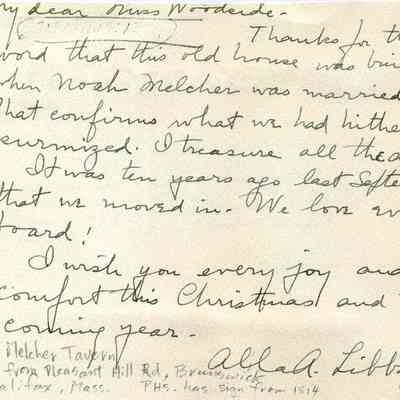 my dear Miss Woodside.
Thanks for th
word that this old house was buil
when Noah Melcher was married
That confirms what we had hithe
surmized. I treasure all the a
It was ten years ago last Septe
that we moved in. We love ev
board!
I wish you every joy and
comfort this Christmas and
coming year.
Alla A. Libb
Melcher Tavern
from Pleasant Hill Rd, Brunswick
alifax, Mass. PHS. has sign from 1814